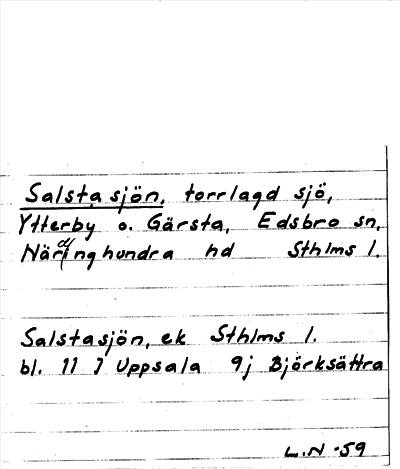 Salsta sjön, torrlagd sjö,
Ytterby o. Gärsta, Edsbro sn,
Närdinghundra hd Sthlms l.
Salstasjön, ek Sthlms l.
bl. 11 I Uppsala 9j Björksättra
L.N -59